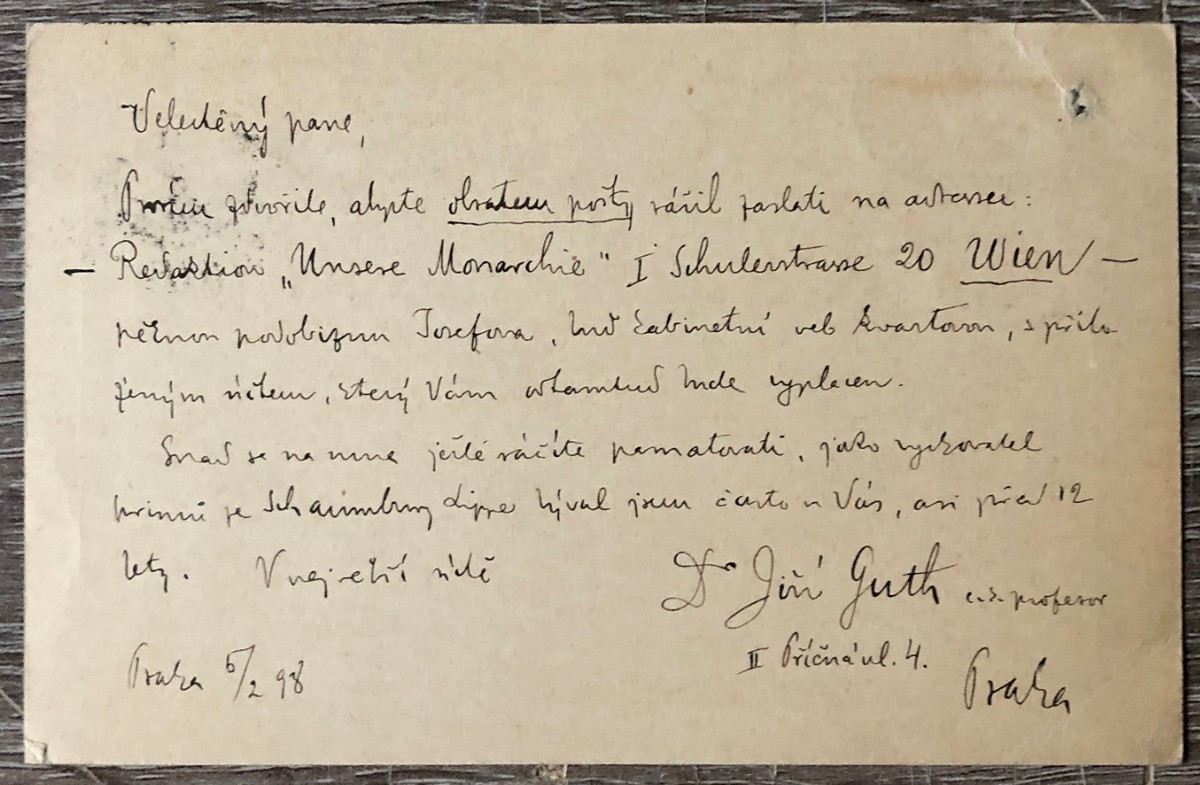 Velectěný pane,
Prosím zdvořile, abyste obratem pošty ráčil zaslati na adresu:
— Redaktion „Unsere Monarchie" I Schulerstrasse 20 Wien —
pěknou podobiznu Josefova, buď kabinetní neb kvartovou, s přilo
ženým účtem, který Vám odtamtud bude vyplacen.
Snad se na mne ještě ráčíte pamatovati, jako vychovatel
princů ze Schaumburg Lippe býval jsem často u Vás, asi před 12
lety. V největší úctě
Dr Jiří Guth c. k. profesor
II Příčná ul. 4.
Praha
Praha 5/2 98